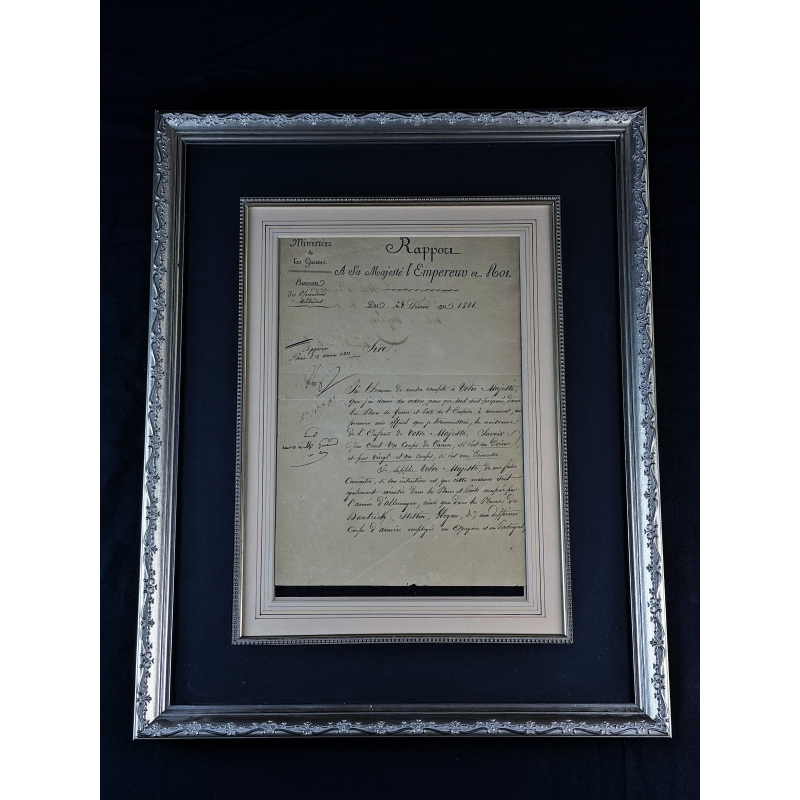 Ministère
de
la Guerre
Bureau
des Opérations
Militaires
Rapport
A Sa Majesté l'Empereur et Roi.
Du 28 Février 1811
Sire
J'ai l'honneur de rendre compte à Votre Majesté,
que j'ai donné des ordres pour que tout soit préparé dans
les Places de guerre et Ports de l'Empire, à annoncer, au
premier avis officiel que je transmettrai, la naissance
de l'Enfant de Votre Majesté, Savoir,
par Cent un Coups de Canon, si c'est un Prince
et par vingt et un coups, si c'est une Princesse.
Je supplie Votre Majesté, de me faire
Connaître, si son intention est que cette mesure soit
également exécutée dans les Places et Ports occupés par
l'armée d'allemagne, ainsi que dans les Places de
Dantzick, Stettin, Glogau, &
Corps d'armée employés en Espagne et en Portugal,